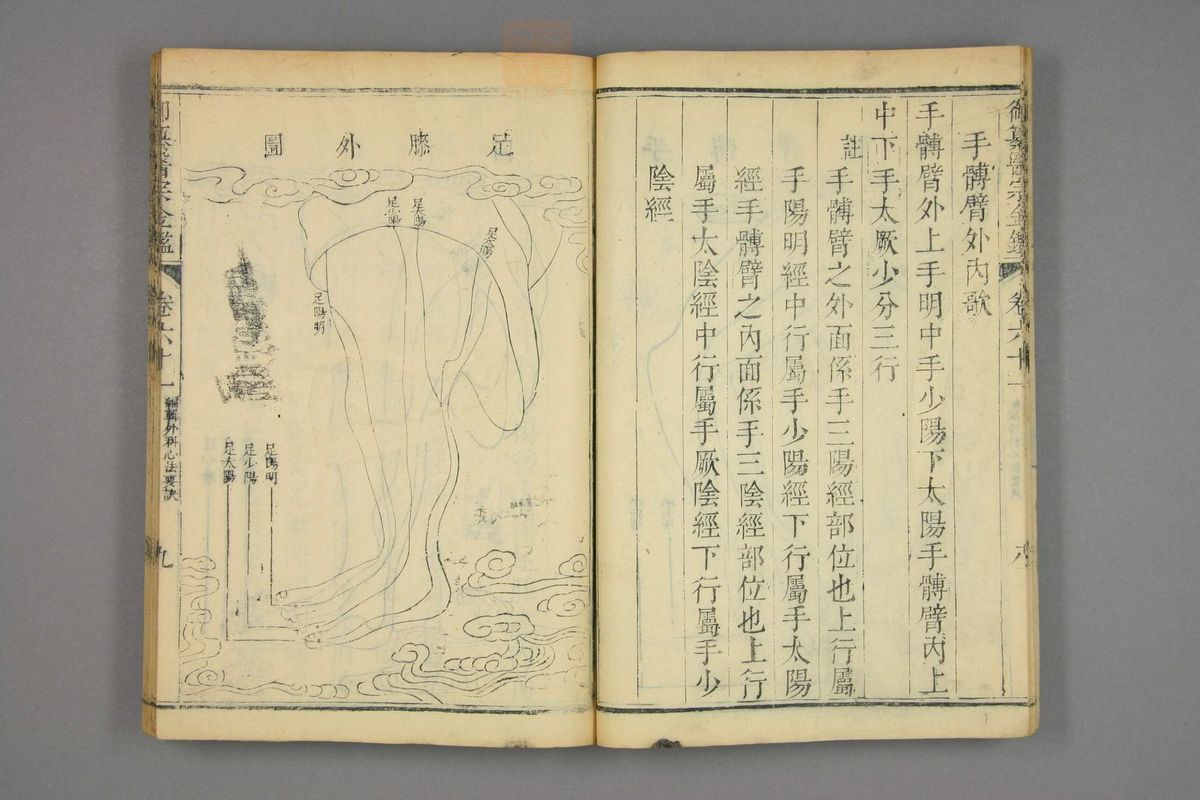 御纂醫宗金鑑 卷六十一 八
手髆臂外內歌
手髆臂外上手明中手少陽下太陽手髆臂內上
中下手太厥少分三行
註
手髆臂之外面係手三陽經部位也上行屬
手陽明經中行屬手少陽經下行屬手太陽
經手髆臂之內面係手三陰經部位也上行
屬手太陰經中行屬手厥陰經下行屬手少
陰經
足膝外圖
足太陽
足少陽
足陽明
足陽明
足陽明
足少陽
足太陽
御纂醫宗金鑑 卷六十一 編輯外科心法要訣 九